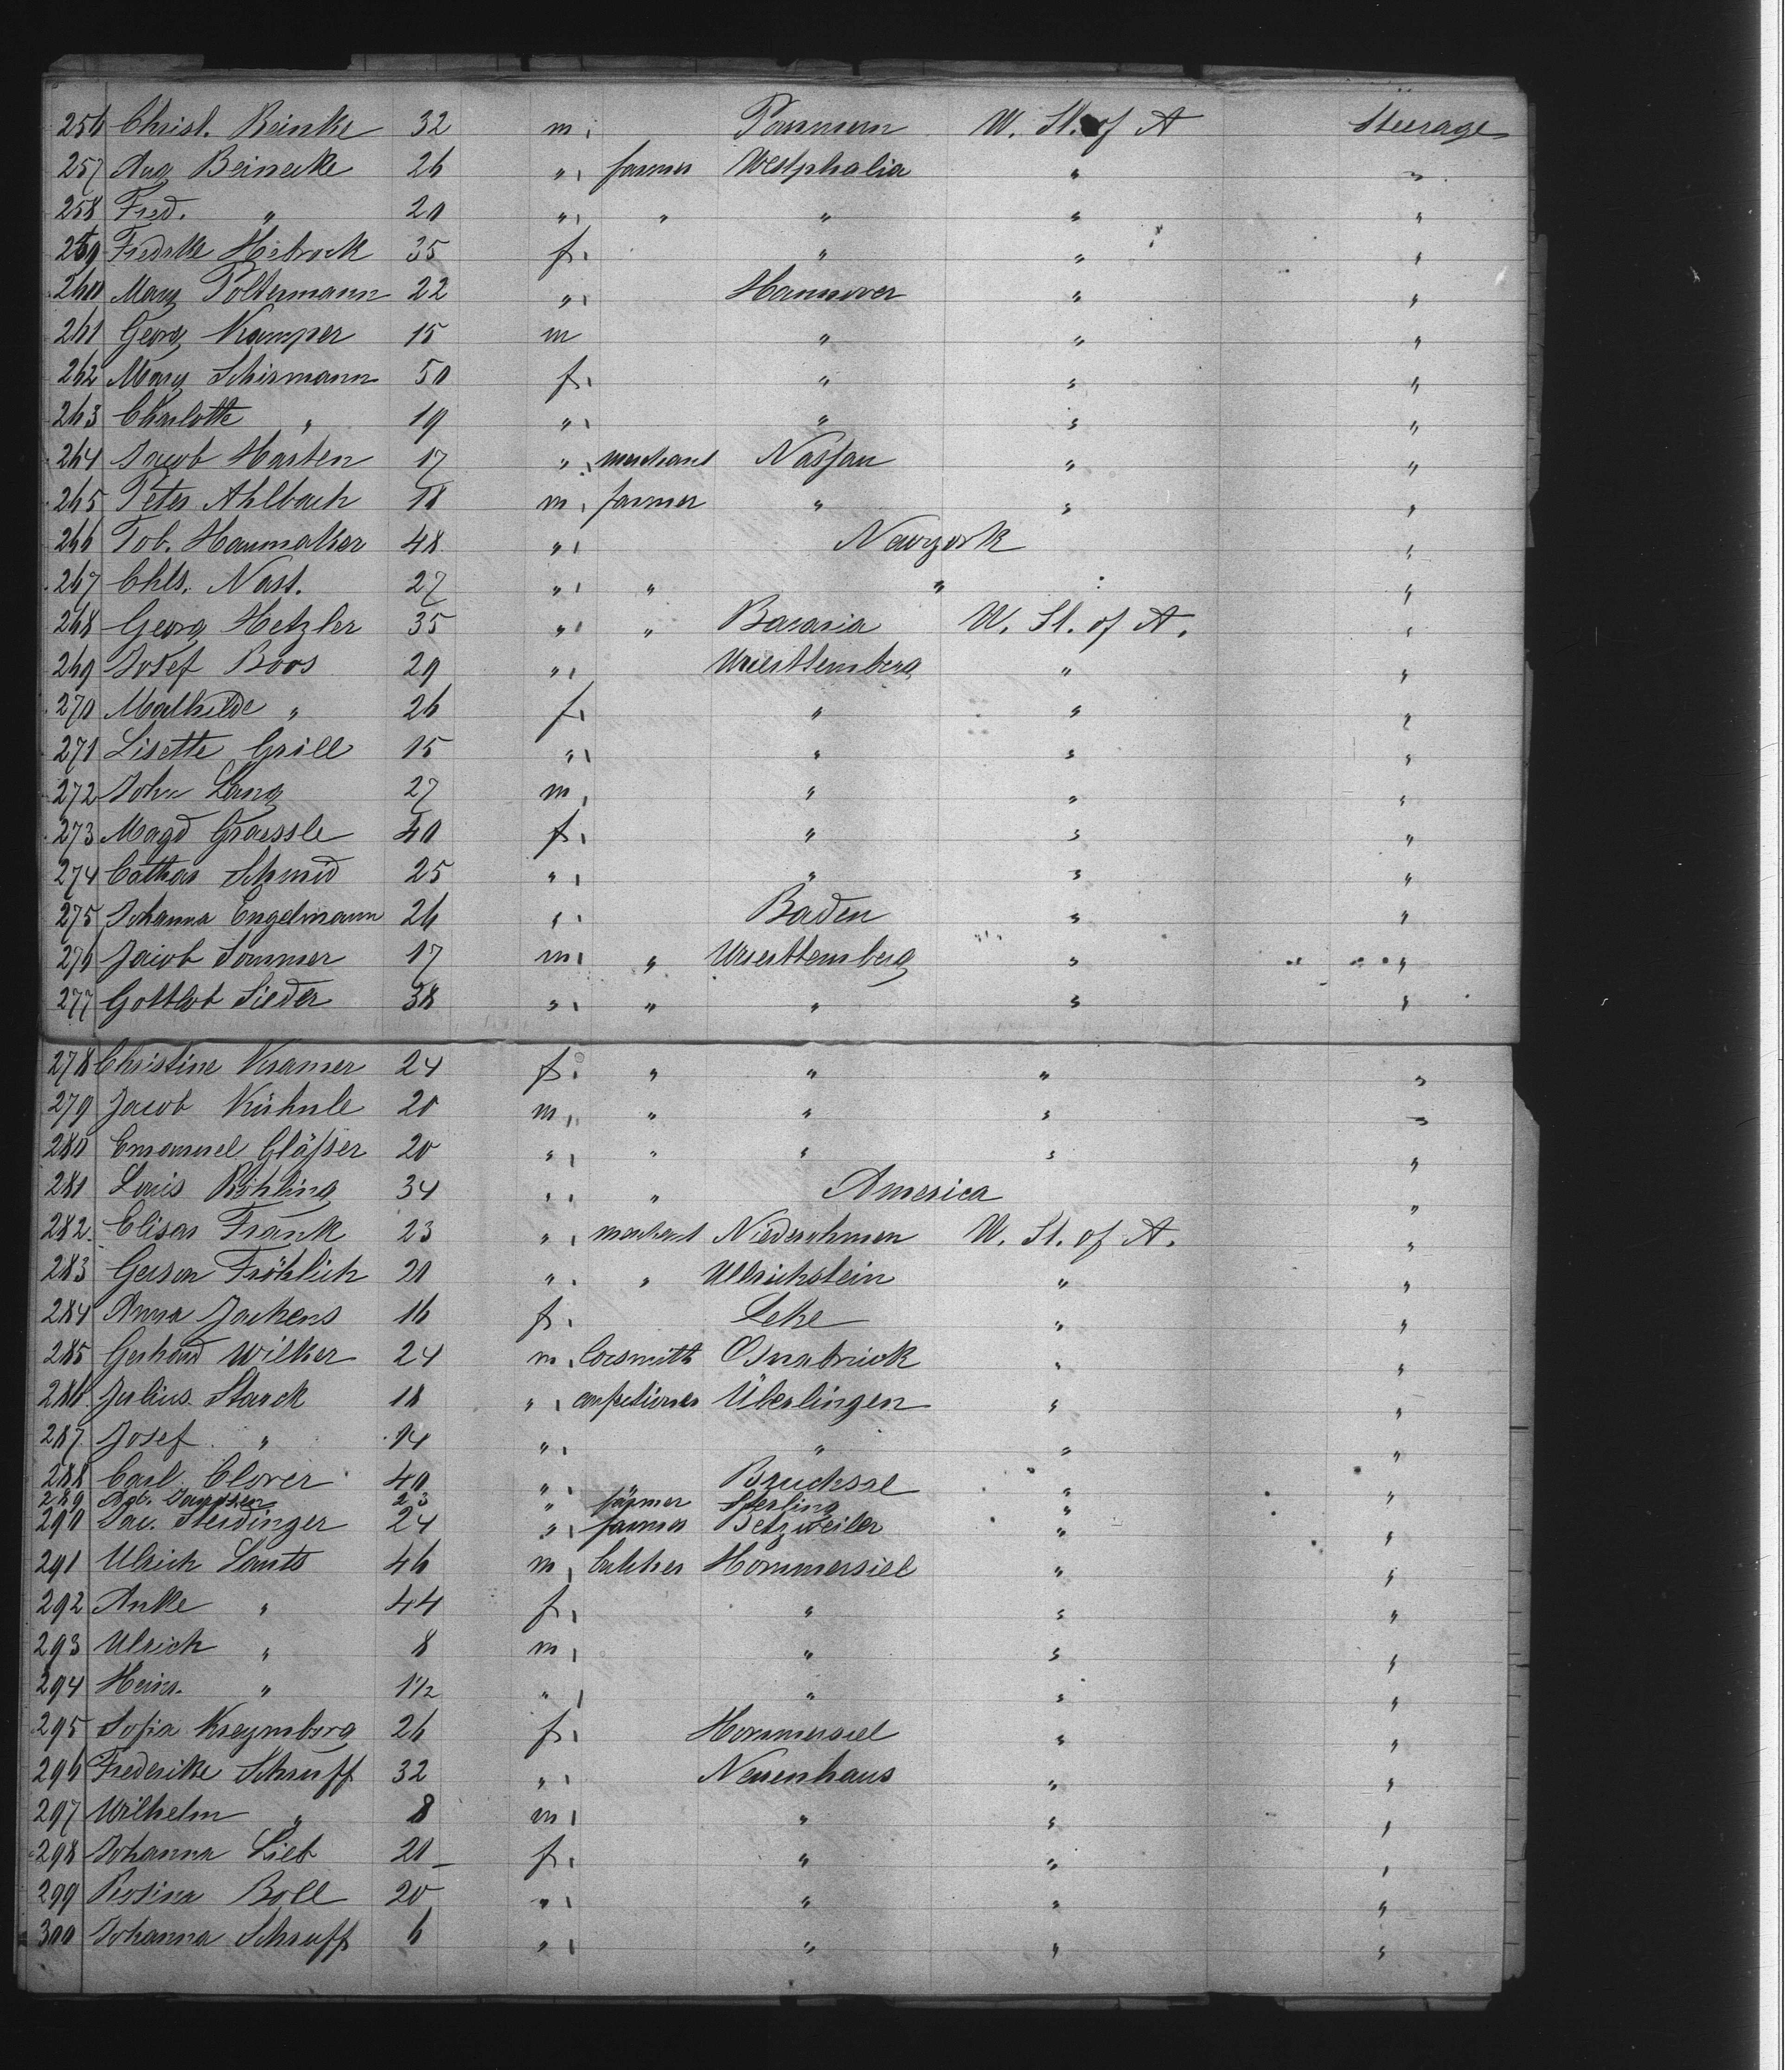 256 Christ. Reinke 32 m. Pommern U. St. of A Steerage
257 Aug Beinecke 26 " farmer Westphalia " "
258 Fred. " 20 " " " " "
259 Fredrke Hebrock 35 f. " " "
260 Mary Poltermann 22 " Hannover " "
261 Georg Kamper 15 m " " "
262 Mary Schirmann 50 f. " " "
263 Charlotte " 19 " " " "
264 Jacob Harten 17 " merchant Nassau " "
265 Peter Ahlbach 18 m. farmer " " "
266 Tob. Hanmaker 48 " Newyork "
267 Chls. Nast. 27 " " " "
268 Georg Hetzler 35 " " Bavaria U. St. of A. "
269 Josef Boos 29 " Wuerttemberg " "
270 Mathilde " 26 f. " " "
271 Lisette Grill 15 " " " "
272 John Lang 27 m. " " "
273 Magd Graessle 40 f. " " "
274 Cathar Schmid 25 " " " "
275 Johanna Engelmann 26 " Baden " "
276 Jacob Sommer 17 m. " Wuerttemberg " "
277 Gottlob Sieder 38 " " " " "
278 Christine Kramer 24 f. " " " "
279 Jacob Kuhnle 20 m. " " " "
280 Emanuel Gläßer 20 " " " " "
281 Louis Röhling 34 " " America "
282. Elisar Frank 23 " merchant Niederohmen U. St. of A. "
283 Gerson Fröhlich 20 " " Ullrichstein " "
284 Anna Jachens 16 f. Lehe " "
285 Gerhard Wilker 24 m. locsmith Osnabrück " "
286. Julius Starck 18 " confectioner Überlingen " "
287 Josef " 14 " " " "
288 Carl Clover 40 " " Bruchsal " "
289 Rob. Janssen 23 " farmer Sterling "
290 Jac. Steidinger 24 " farmer Betzweiler " "
291 Ulrich Lants 46 m. Hommersiel " "
292 Anke " 44 f. " " "
293 Ulrich " 8 m. " " "
294 Heinr. " 1 1/2 " " " "
295 Sofia Kreymborg 26 f. Hommersiel " "
296 Frederike Schruff 32 " Neuenhaus " "
297 Wilhelm " 8 m. " " "
298 Johanna Lieb 20 f. " " "
299 Rosina Boll 20 " " " "
300 Johanna Schruff 6 " " " "